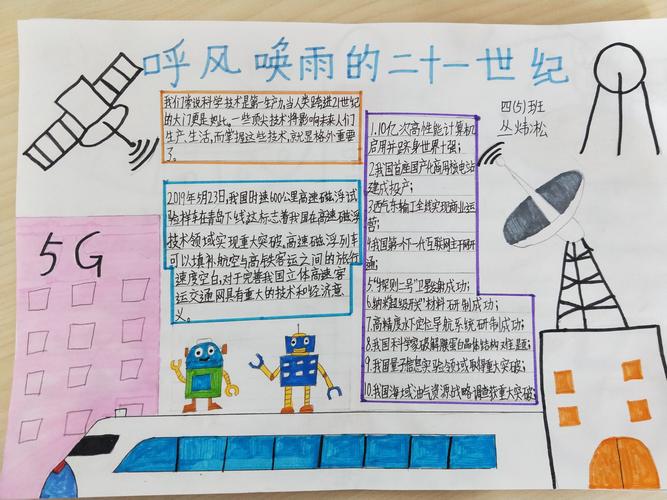 呼风唤雨的二十一世纪
四(5)班
丛炜淞
我们常说科学技术是第一生产力,当人类跨进21世纪
的大门更是如此。一些顶尖技术将影响未来人们
生产、生活,而掌握这些技术,就显格外重要
了。
2019年5月23日,我国时速600公里高速磁浮试
验样车在青岛下线。这标志着我国在高速磁浮
技术领域实现重大突破。高速磁浮列车
可以填补航空与高铁客运之间的旅行
速度空白,对于完善我国立体高速客
运交通网具有重大的技术和经济意
义。
1.10亿次高性能计算机
启用并跻身世界十强;
2.我国首座国产化商用核电站
建成投产;
3.西气东输工全线实现商业运
营;
4.我国第一个下一代互联网主干网开
通;
5."探测二号"卫星发射成功;
6."纳米超级开关"材料研制成功;
7.高精度水下定位导航系统研制成功;
8.我国科学家破解膜蛋白晶体结构难题;
9.我国量子信息实验领域取得重大突破;
10.我国海域油气资源战略调查获重大突破;
5G